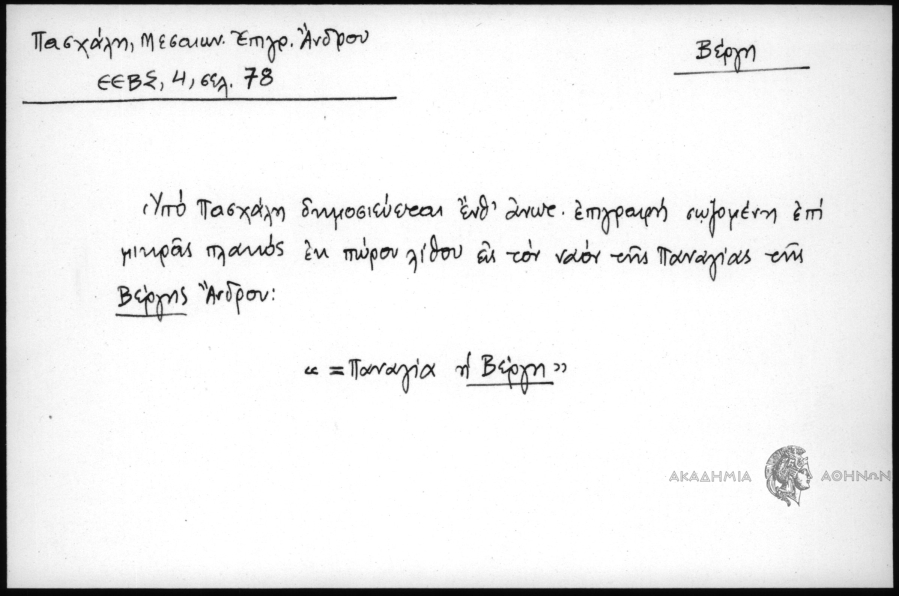 Πασχάλη, Μεσαιων. Ἐπιγρ. Ἄνδρου
ΕΕΒΣ, 4, σελ. 78
Βέργη
Ὑπό Πασχάλη δημοσιεύεται ἔνθ' ἀνωτ. ἐπιγραφή σῳζομένη ἐπί
μικρᾶς πλακός ἐκ πώρου λίθου εἰς τόν ναόν τῆς Παναγίας τῆς
Βέργης Ἄνδρου:
« = Παναγία ἡ Βέργη »
ΑΚΑΔΗΜΙΑ ΑΘΗΝΩΝ